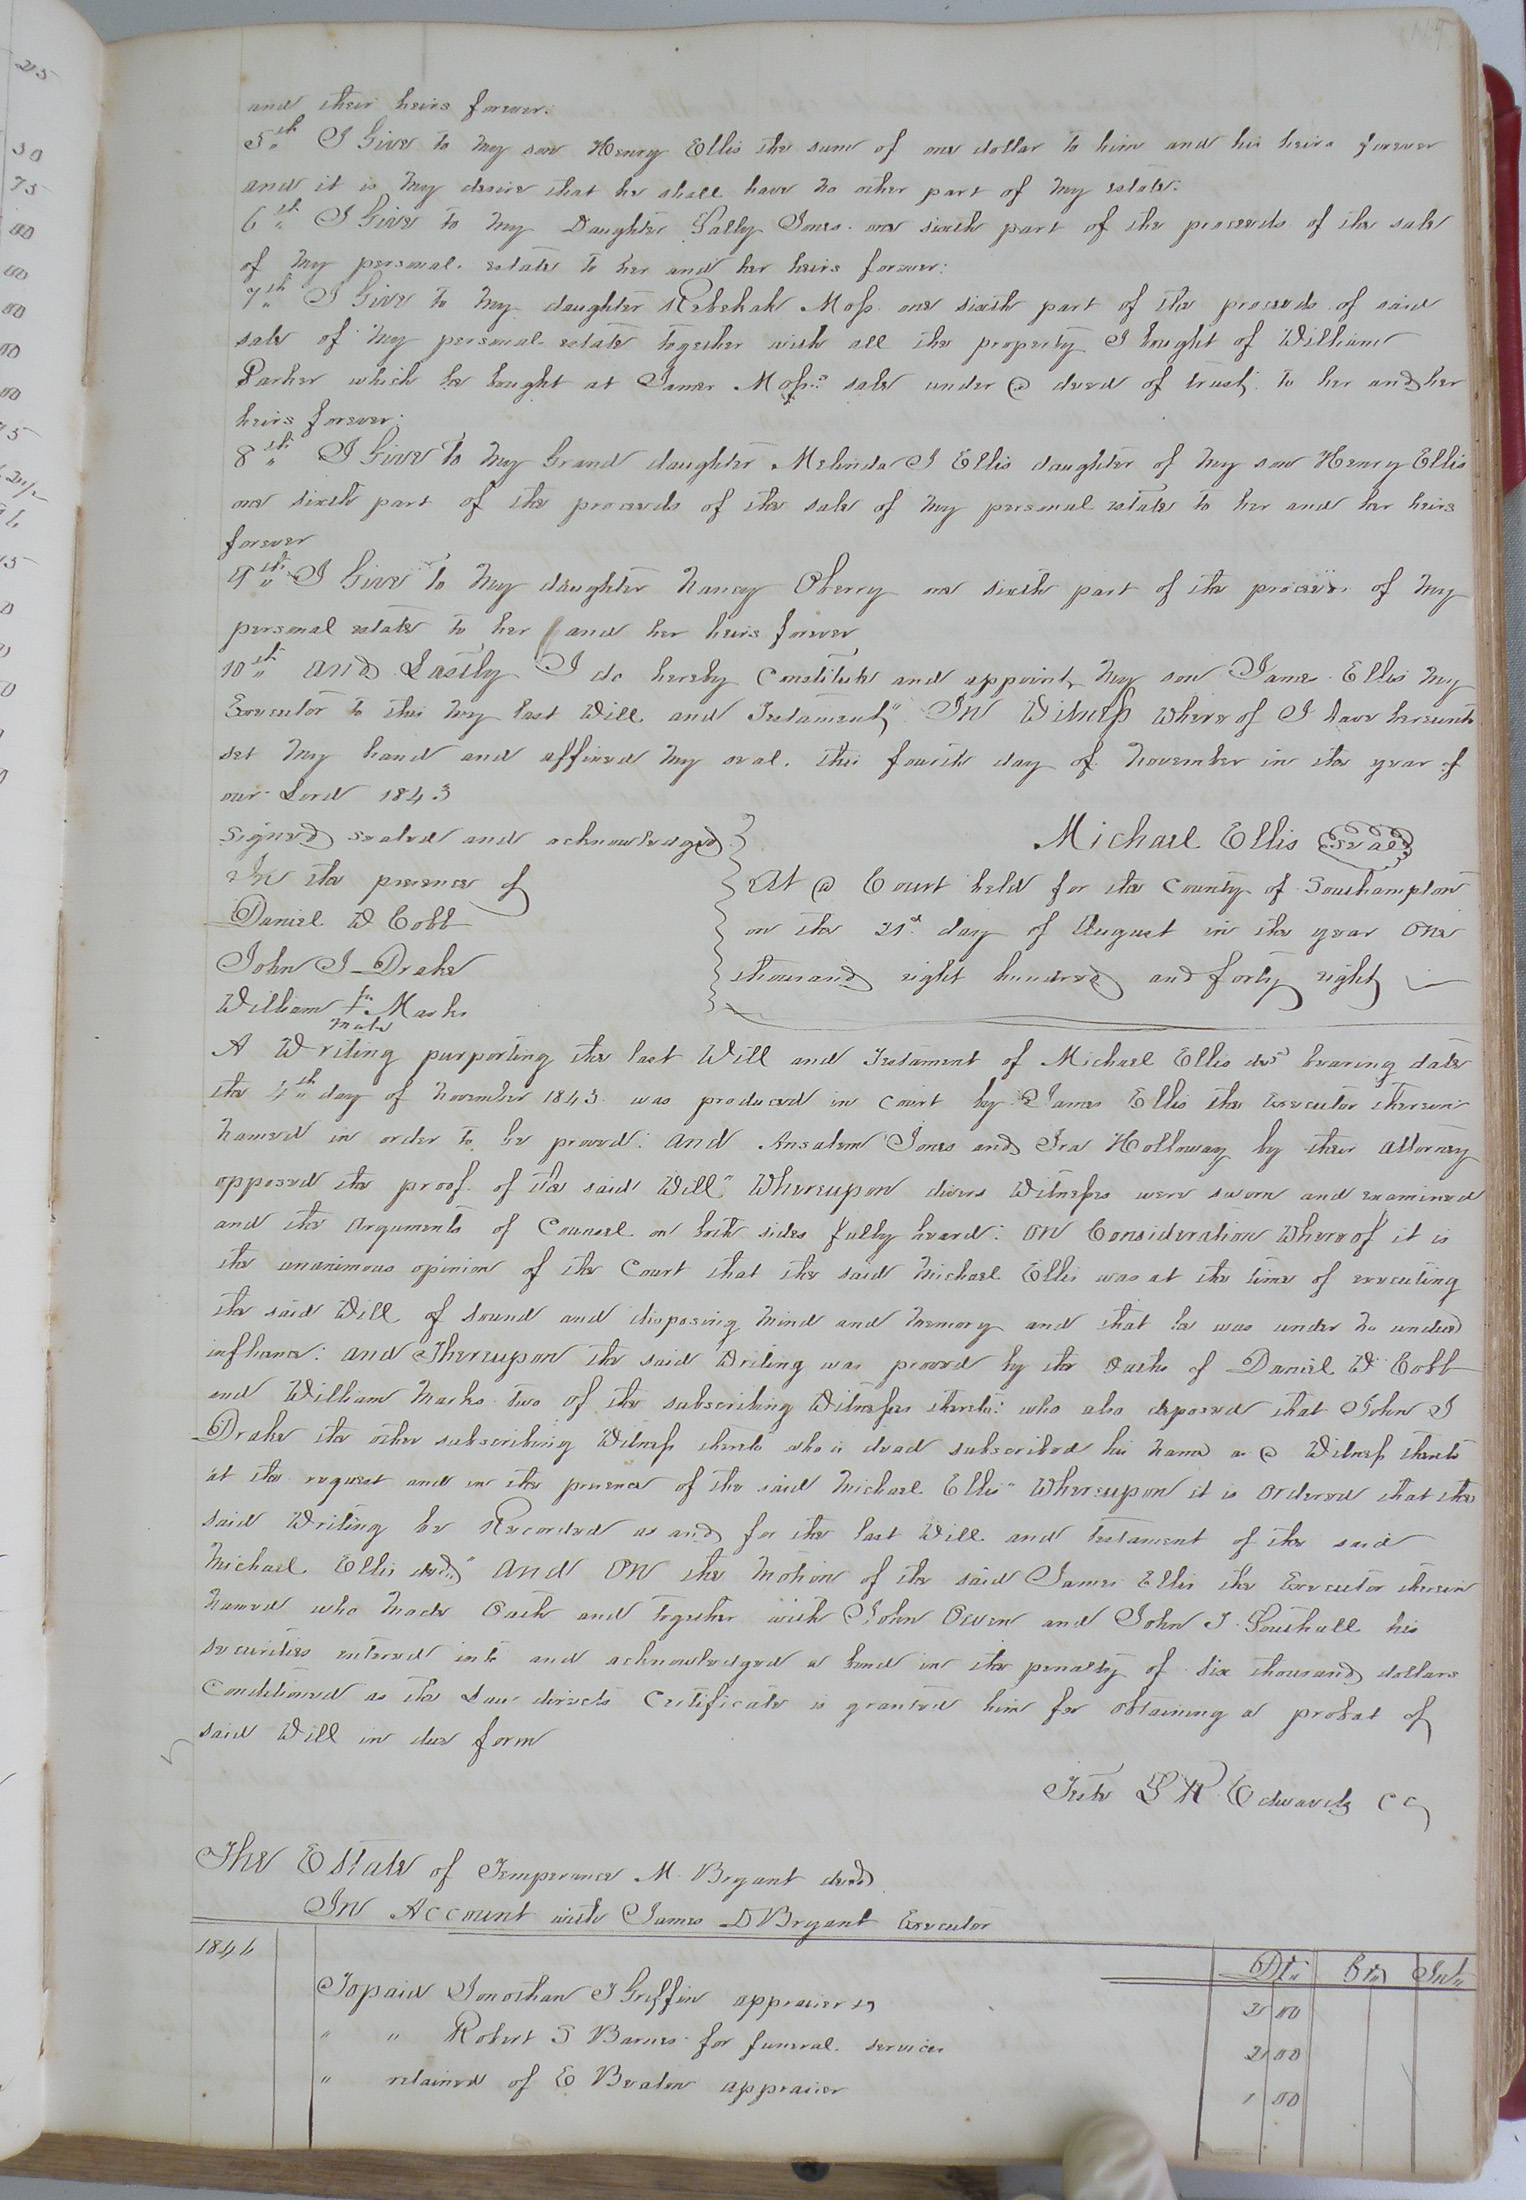 and their heirs forever.
5th I Give to my son Henry Ellis the sum of one dollar to him and his heirs forever
and it is my desire that he shall have no other part of my estate.
6th I Give to my Daughter Sally Jones one sixth part of the proceeds of the sale
of my personal estate to her and her heirs forever:
7th I Give to my daughter Rebekah Moss one sixth part of the proceeds of said
sale of my personal estate together with all the property I bought of William
Parker which he bought at James Moss's sale under a deed of trust to her and her
heirs forever.
8th I Give to my Grand daughter Melinda J Ellis daughter of my son Henry Ellis
one sixth part of the proceeds of the sale of my personal estate to her and her heirs
forever
9th I Give to my daughter Nancy Oberry one sixth part of the proceeds of my
personal estate to her and her heirs forever
10th and Lastly I do hereby Constitute and appoint my son James Ellis my
Executor to this my last Will and Testament" In Witness whereof I have hereunto
set my hand and affixed my seal this fourth day of November in the year of
our Lord 1843
Signed sealed and acknowledged
In the presence of
Daniel W Cobb
John J Drake
William his + mark Marks
Michael Ellis Seal
At a Court held for the County of Southampton
on the 21st day of August in the year one
thousand eight hundred and forty eight
A Writing purporting the last Will and Testament of Michael Ellis decd bearing date
the 4th day of November 1843 was produced in court by James Ellis the Executor therein
named in order to be proved: and Ansalem Jones and Ira Holloway by their attorney
opposed the proof of the said Will" Whereupon divers Witnesses were sworn and examined
and the arguments of Counsel on both sides fully heard: on Consideration whereof it is
the unanimous opinion of the Court that the said Michael Ellis was at the time of executing
the said Will of sound and disposing mind and memory and that he was under no undue
influence: and Thereupon the said Writing was proved by the oaths of Daniel W Cobb
and William Marks two of the subscribing Witnesses thereto: who also deposed that John J
Drake the other subscribing Witness thereto who is dead subscribed his name as a Witness thereto
at the request and in the presence of the said Michael Ellis" Whereupon it is ordered that the
said Writing be Recorded as and for the last Will and testament of the said
Michael Ellis decd" and on the motion of the said James Ellis the Executor therein
named who made oath and together with John Owen and John J Southall his
securities entered into and acknowledged a bond in the penalty of six thousand dollars
Conditioned as the Law directs Certificate is granted him for obtaining a probat of
said Will in due form
Teste L R Edwards CC
The Estate of Temperance M Bryant decd
In Account with James D Bryant Executor
1844 Dr Cr Int
To paid Jonathan J Griffin appraiser 2 00
" " Robert S Barnes for funeral services 2 00
" retained of E Beaton appraiser 1 00